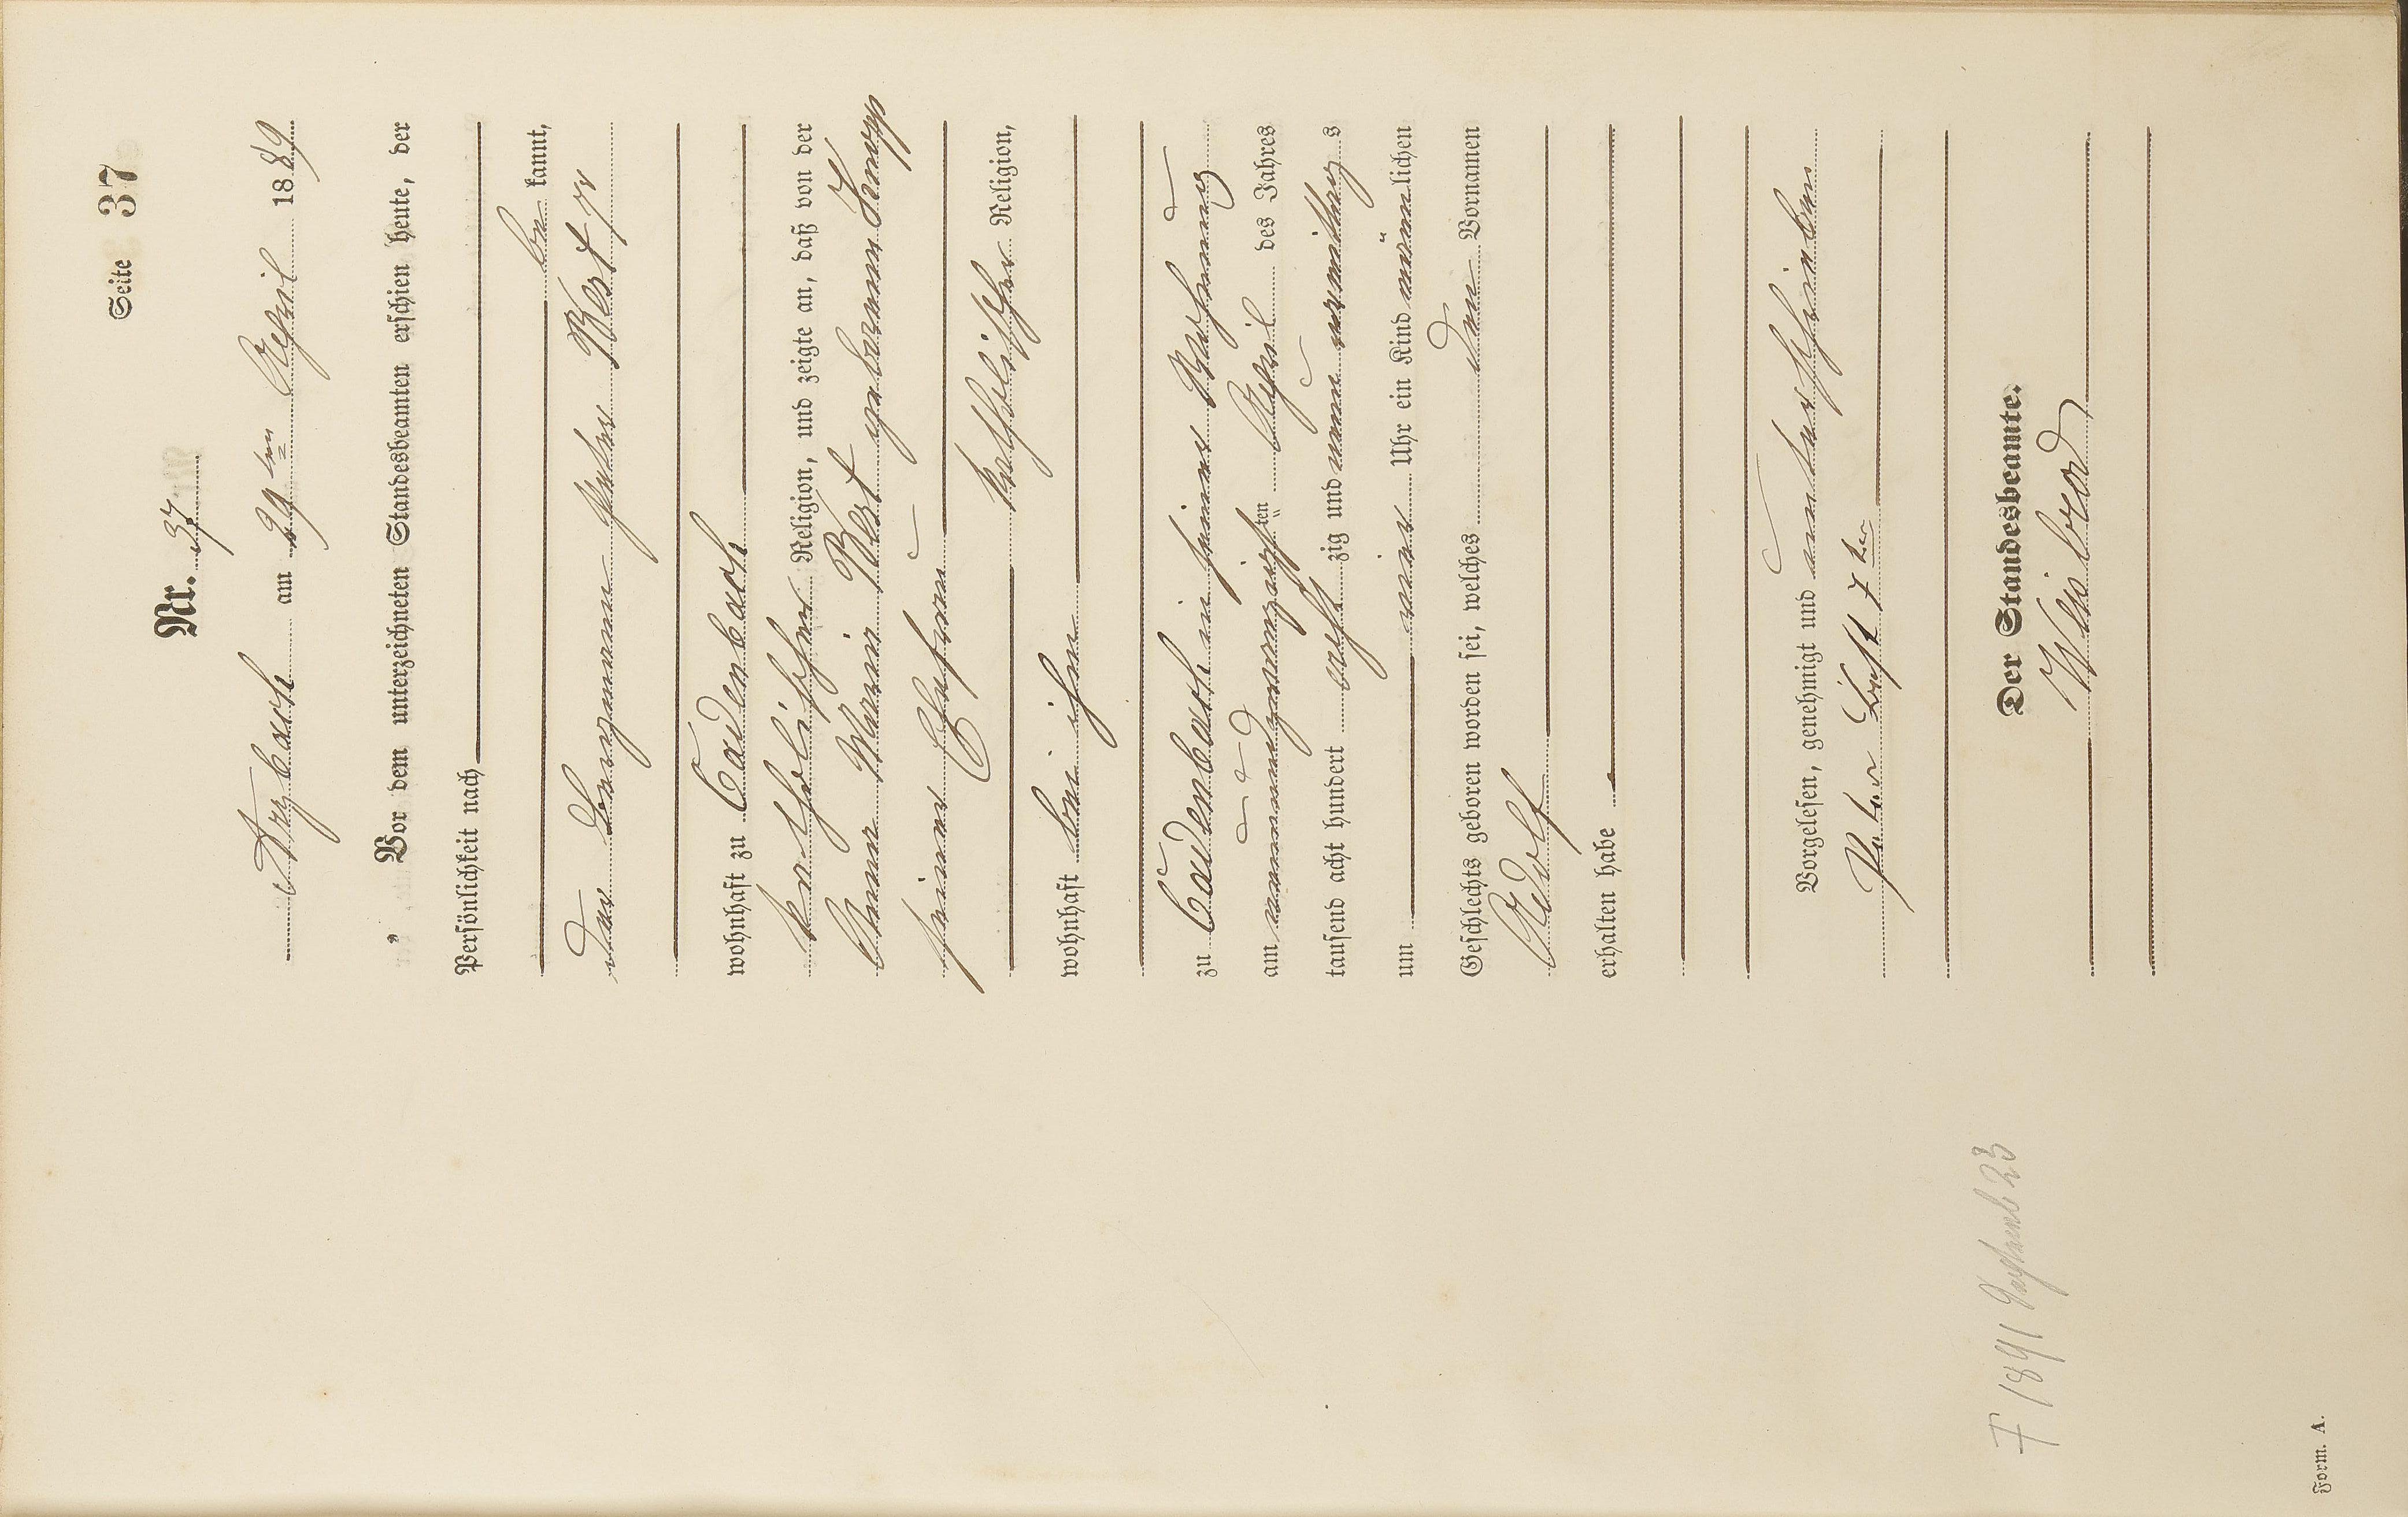 Seite 37
Nr. 37.
Arzbach am 29ten April 1889
Vor dem unterzeichneten Standesbeamten erschien heute, der
Persönlichkeit nach
be kannt,
der Bergmann Peter Best 7r
wohnhaft zu Cadenbach
katholischer Religion, und zeigte an, daß von der
Anna Maria Best geborenen Knopp
seiner Ehefrau
katholischer Religion,
wohnhaft bei ihm
zu Cadenbach in seiner Behausung
am neunundzwanzigsten April des Jahres
tausend acht hundert acht zig und neun vormittags
um vier Uhr ein Kind männlichen
Geschlechts geboren worden sei, welches den Vornamen
Adolf
erhalten habe
Vorgelesen, genehmigt und unterschrieben
Peter Best 7ter
Der Standesbeamte.
Form. A.